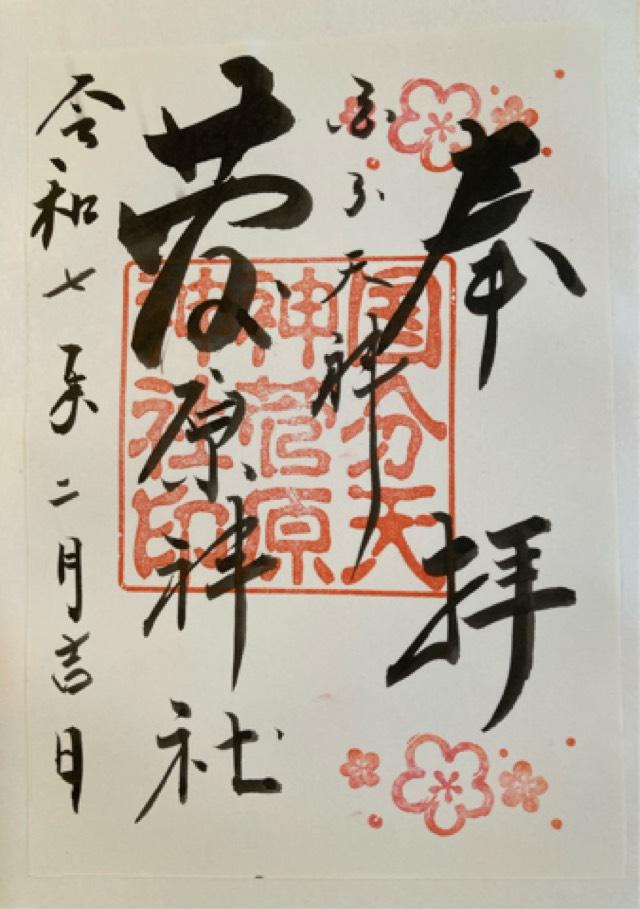 奉拝
国分天神
菅原神社
令和七年二月吉日
国分天
神菅原
神社印